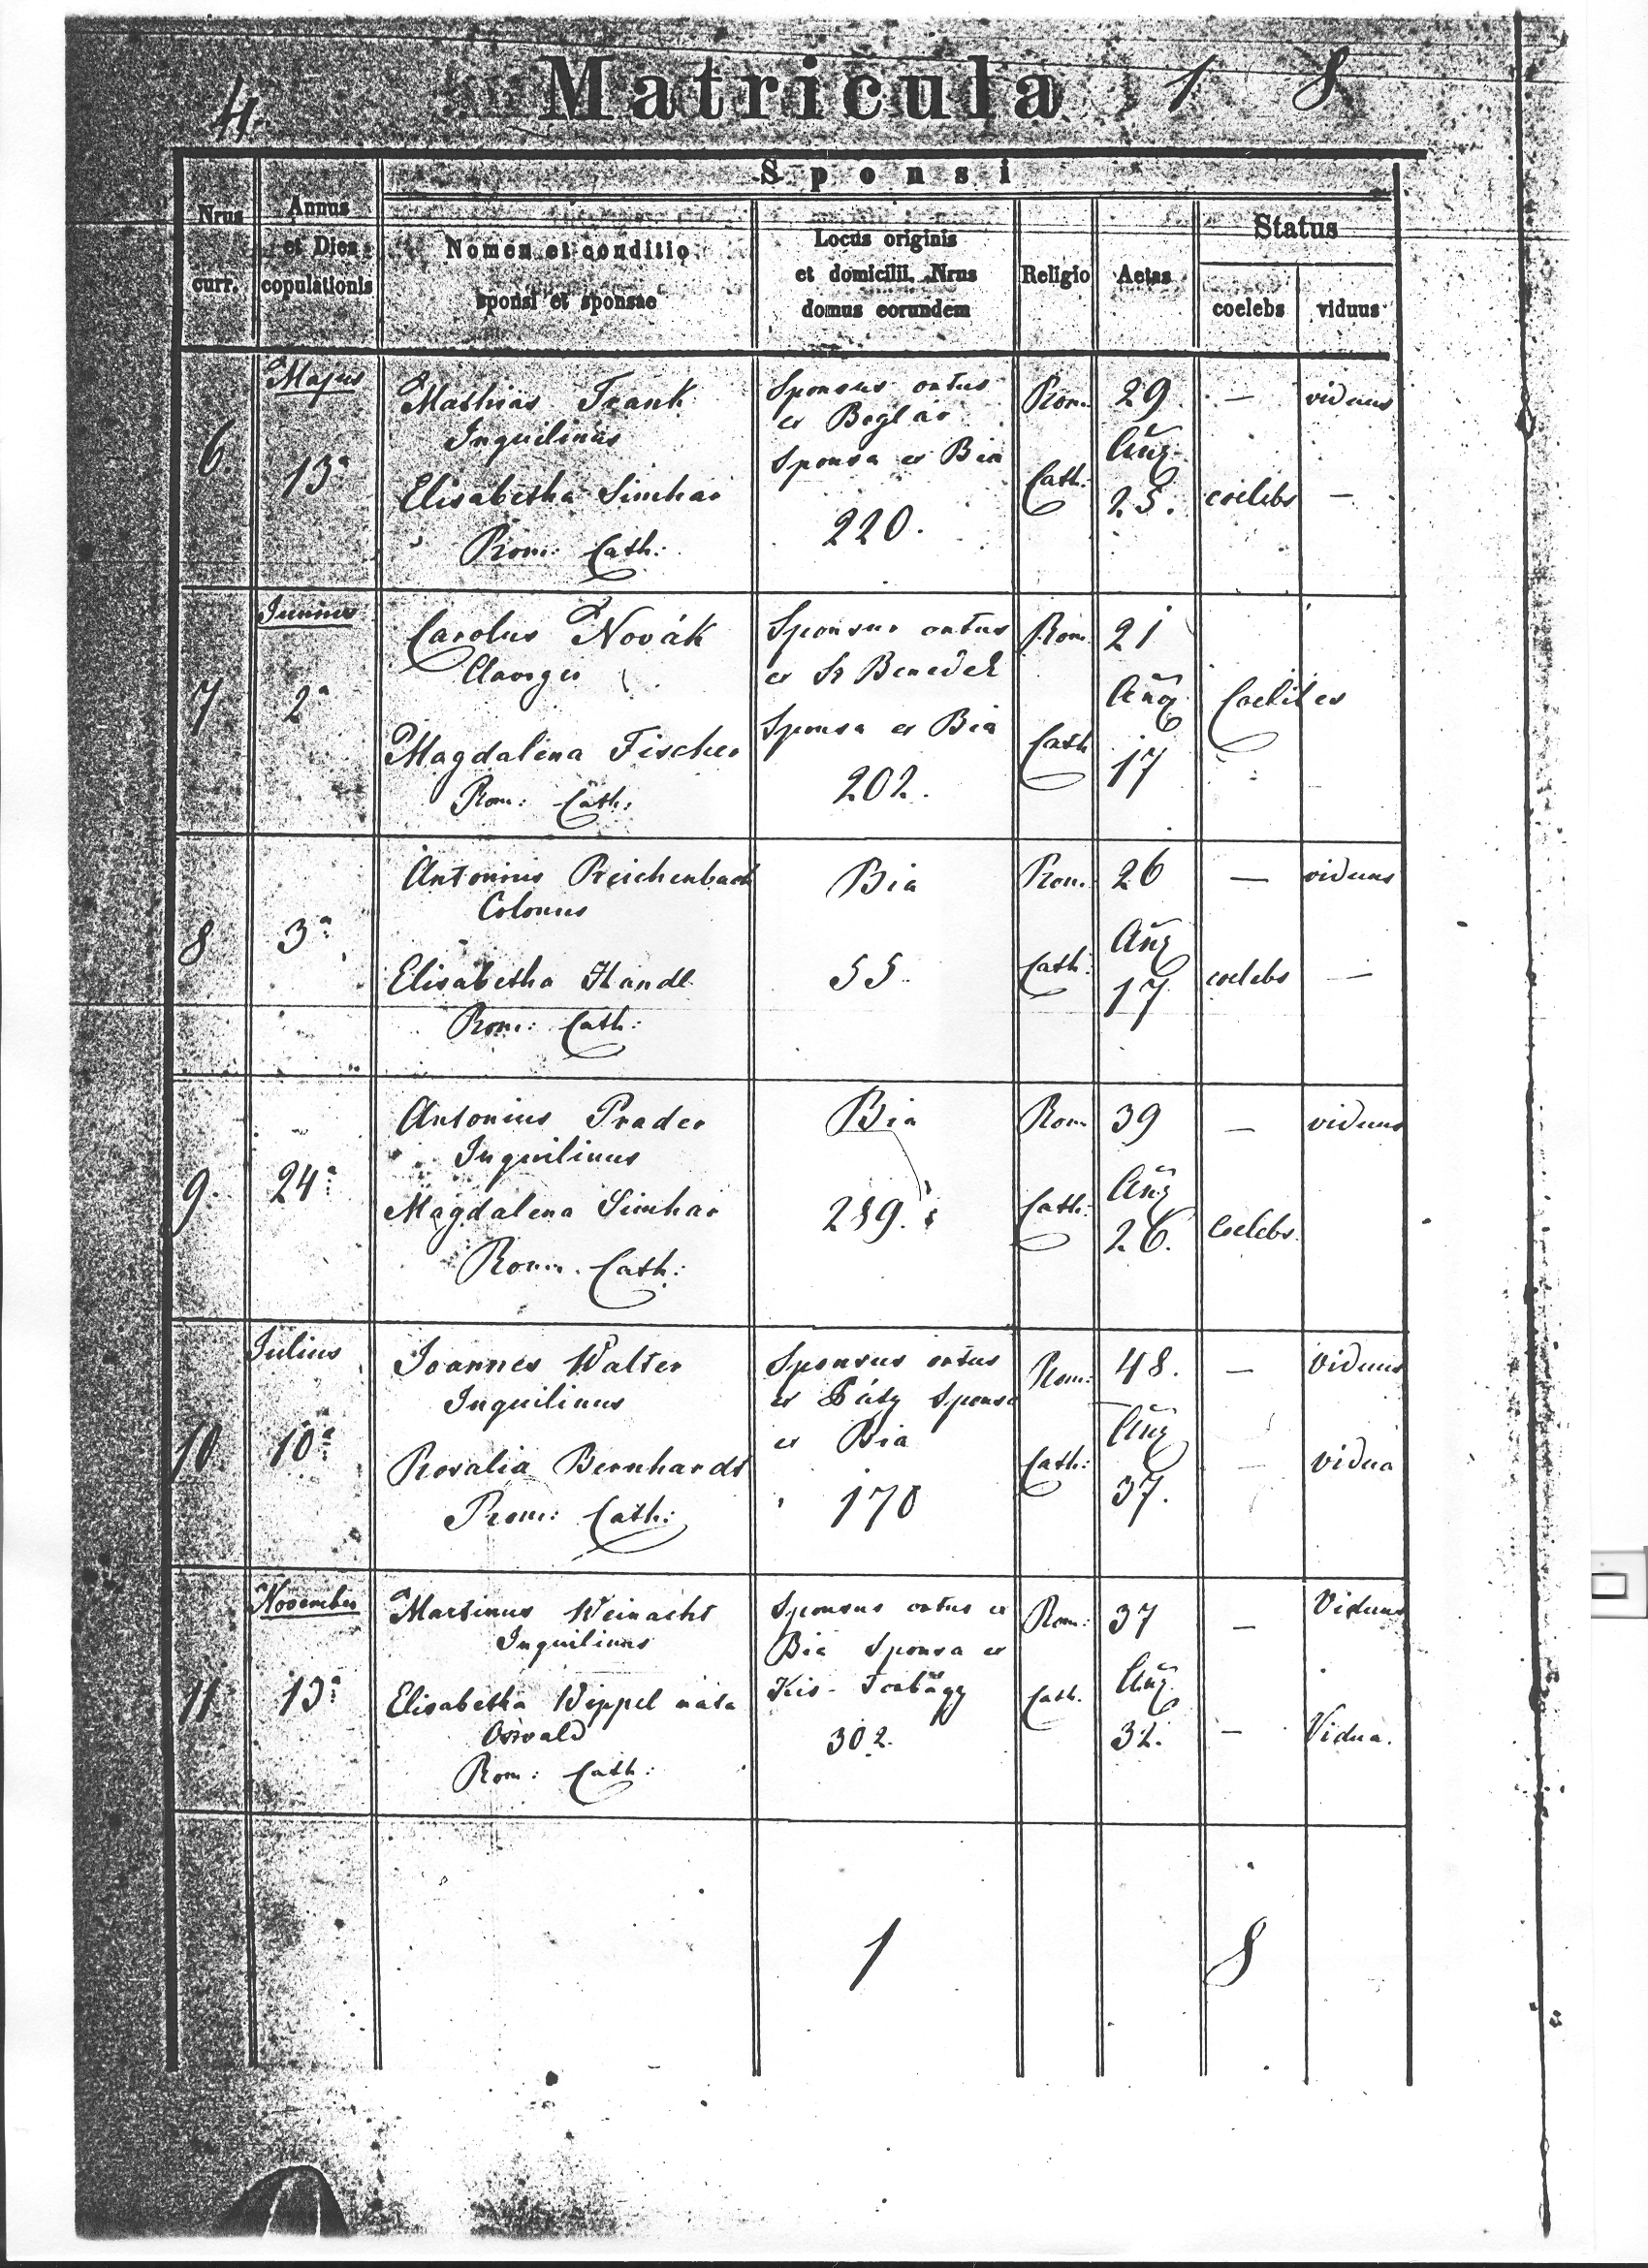 4.
Matricula 1 8
Sponsi
Nrus curr.
Annus et Dies copulationis
Nomen et conditio sponsi et sponsae
Locus originis et domicilii, Nrus domus eorundem
Religio
Aetas
Status
coelebs
viduus
6.
Majus
13a
Mathias Frank
Inquilinus
Elisabetha Simhar
Rom: Cath:
Sponsus ortus
ex Boglár
Sponsa ex Bia
220.
Rom.
Cath:
29
Añõ
25.
— viduus
coelebs —
7
Junius
2a
Carolus Novák
Claviger
Magdalena Fischer
Rom: Cath:
Sponsus ortus
ex St Benedek
Sponsa ex Bia
202.
Rom
Cath
21
17
Coelibes
8
3a
Antonius Reichenbach
Colonus
Elisabetha Handl
Rom: Cath:
Bia
55.
Rom.
Cath:
26
17
— viduus
coelebs —
9.
24a
Antonius Prader
Inquilinus
Magdalena Simhar
Rom. Cath:
Bia
289.
Rom
Cath:
39
26.
— viduus
Coelebs.
10.
Julius
10a
Joannes Walter
Inquilinus
Rosalia Bernhardt
Rom: Cath:
Sponsus ortus
ex Páty Sponsa
ex Bia
170
Rom:
Cath:
48.
37.
— Viduus
— vidua
11
November
13a
Martinus Weinacht
Inquilinus
Elisabetha Wippel nata
Oswald
Rom: Cath:
Sponsus ortus ex
Bia Sponsa ex
Kis-Torbágy
302.
Rom:
Cath.
37
32.
— Viduus
— Vidua.
1 8